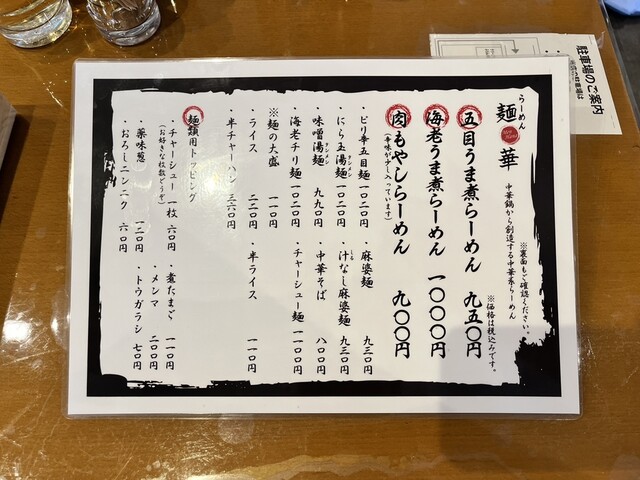 らーめん
麺華
中華鍋から創造する中華系らーめん
※裏面もご確認ください。
※価格は税込みです。
五目うま煮らーめん 九五〇円
海老うま煮らーめん 一〇〇〇円
肉もやしらーめん 九〇〇円
(辛味が少し入っています)
・ピリ辛五目麺 一〇二〇円
・麻婆麺 九三〇円
・にら玉湯麺 一〇二〇円
タンメン
・汁なし麻婆麺 九三〇円
しる
味噌湯麺 九九〇円
タンメン
・中華そば 八〇〇円
・海老チリ麺 一〇二〇円
・チャーシュー麺 一一〇〇円
※麺の大盛 一一〇円
・ライス 二二〇円
・半ライス 一一〇円
・半チャーハン 三六〇円
麺類用トッピング
・チャーシュー 一枚 六〇円
(お好きな枚数どうぞ)
・煮たまご 一一〇円
・メンマ 二〇〇円
・薬味葱 一二〇円
・トウガラシ 七〇円
おろしニンニク 六〇円
駐車場のご案内